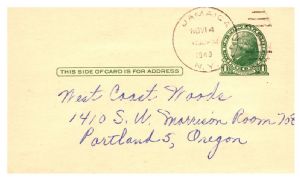 JAMAICA
NOV 14
1949
N.Y.
THIS SIDE OF CARD IS FOR ADDRESS
West Coast Woods
1410 S. W. Morrison Room
Portland 5, Oregon